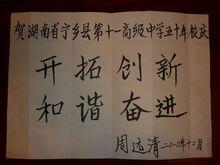 贺湖南省宁乡县第十一高级中学五十年校庆
开拓创新
和谐奋进
周远清二〇〇八年十二月